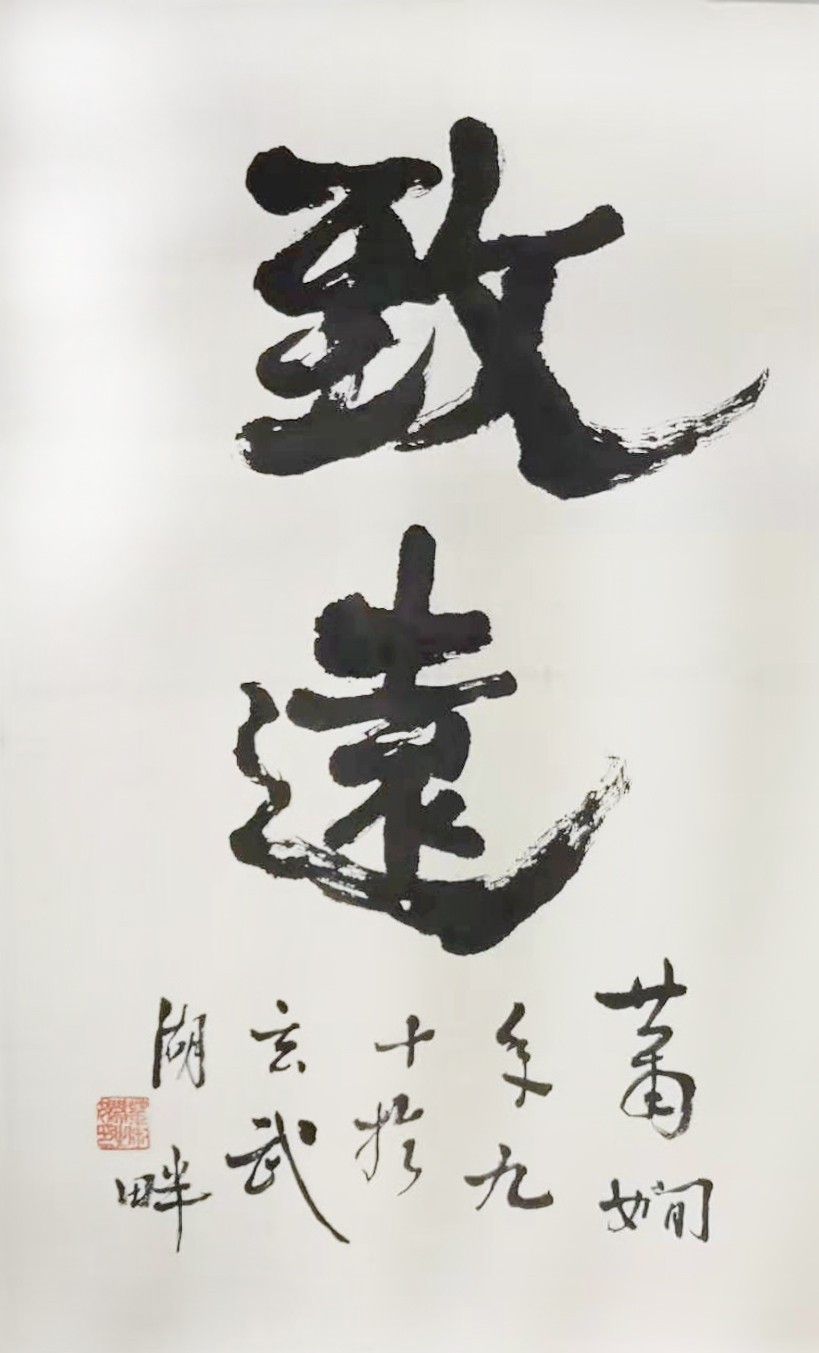 致
遠
蕭嫺
年九
十於
玄武
湖畔